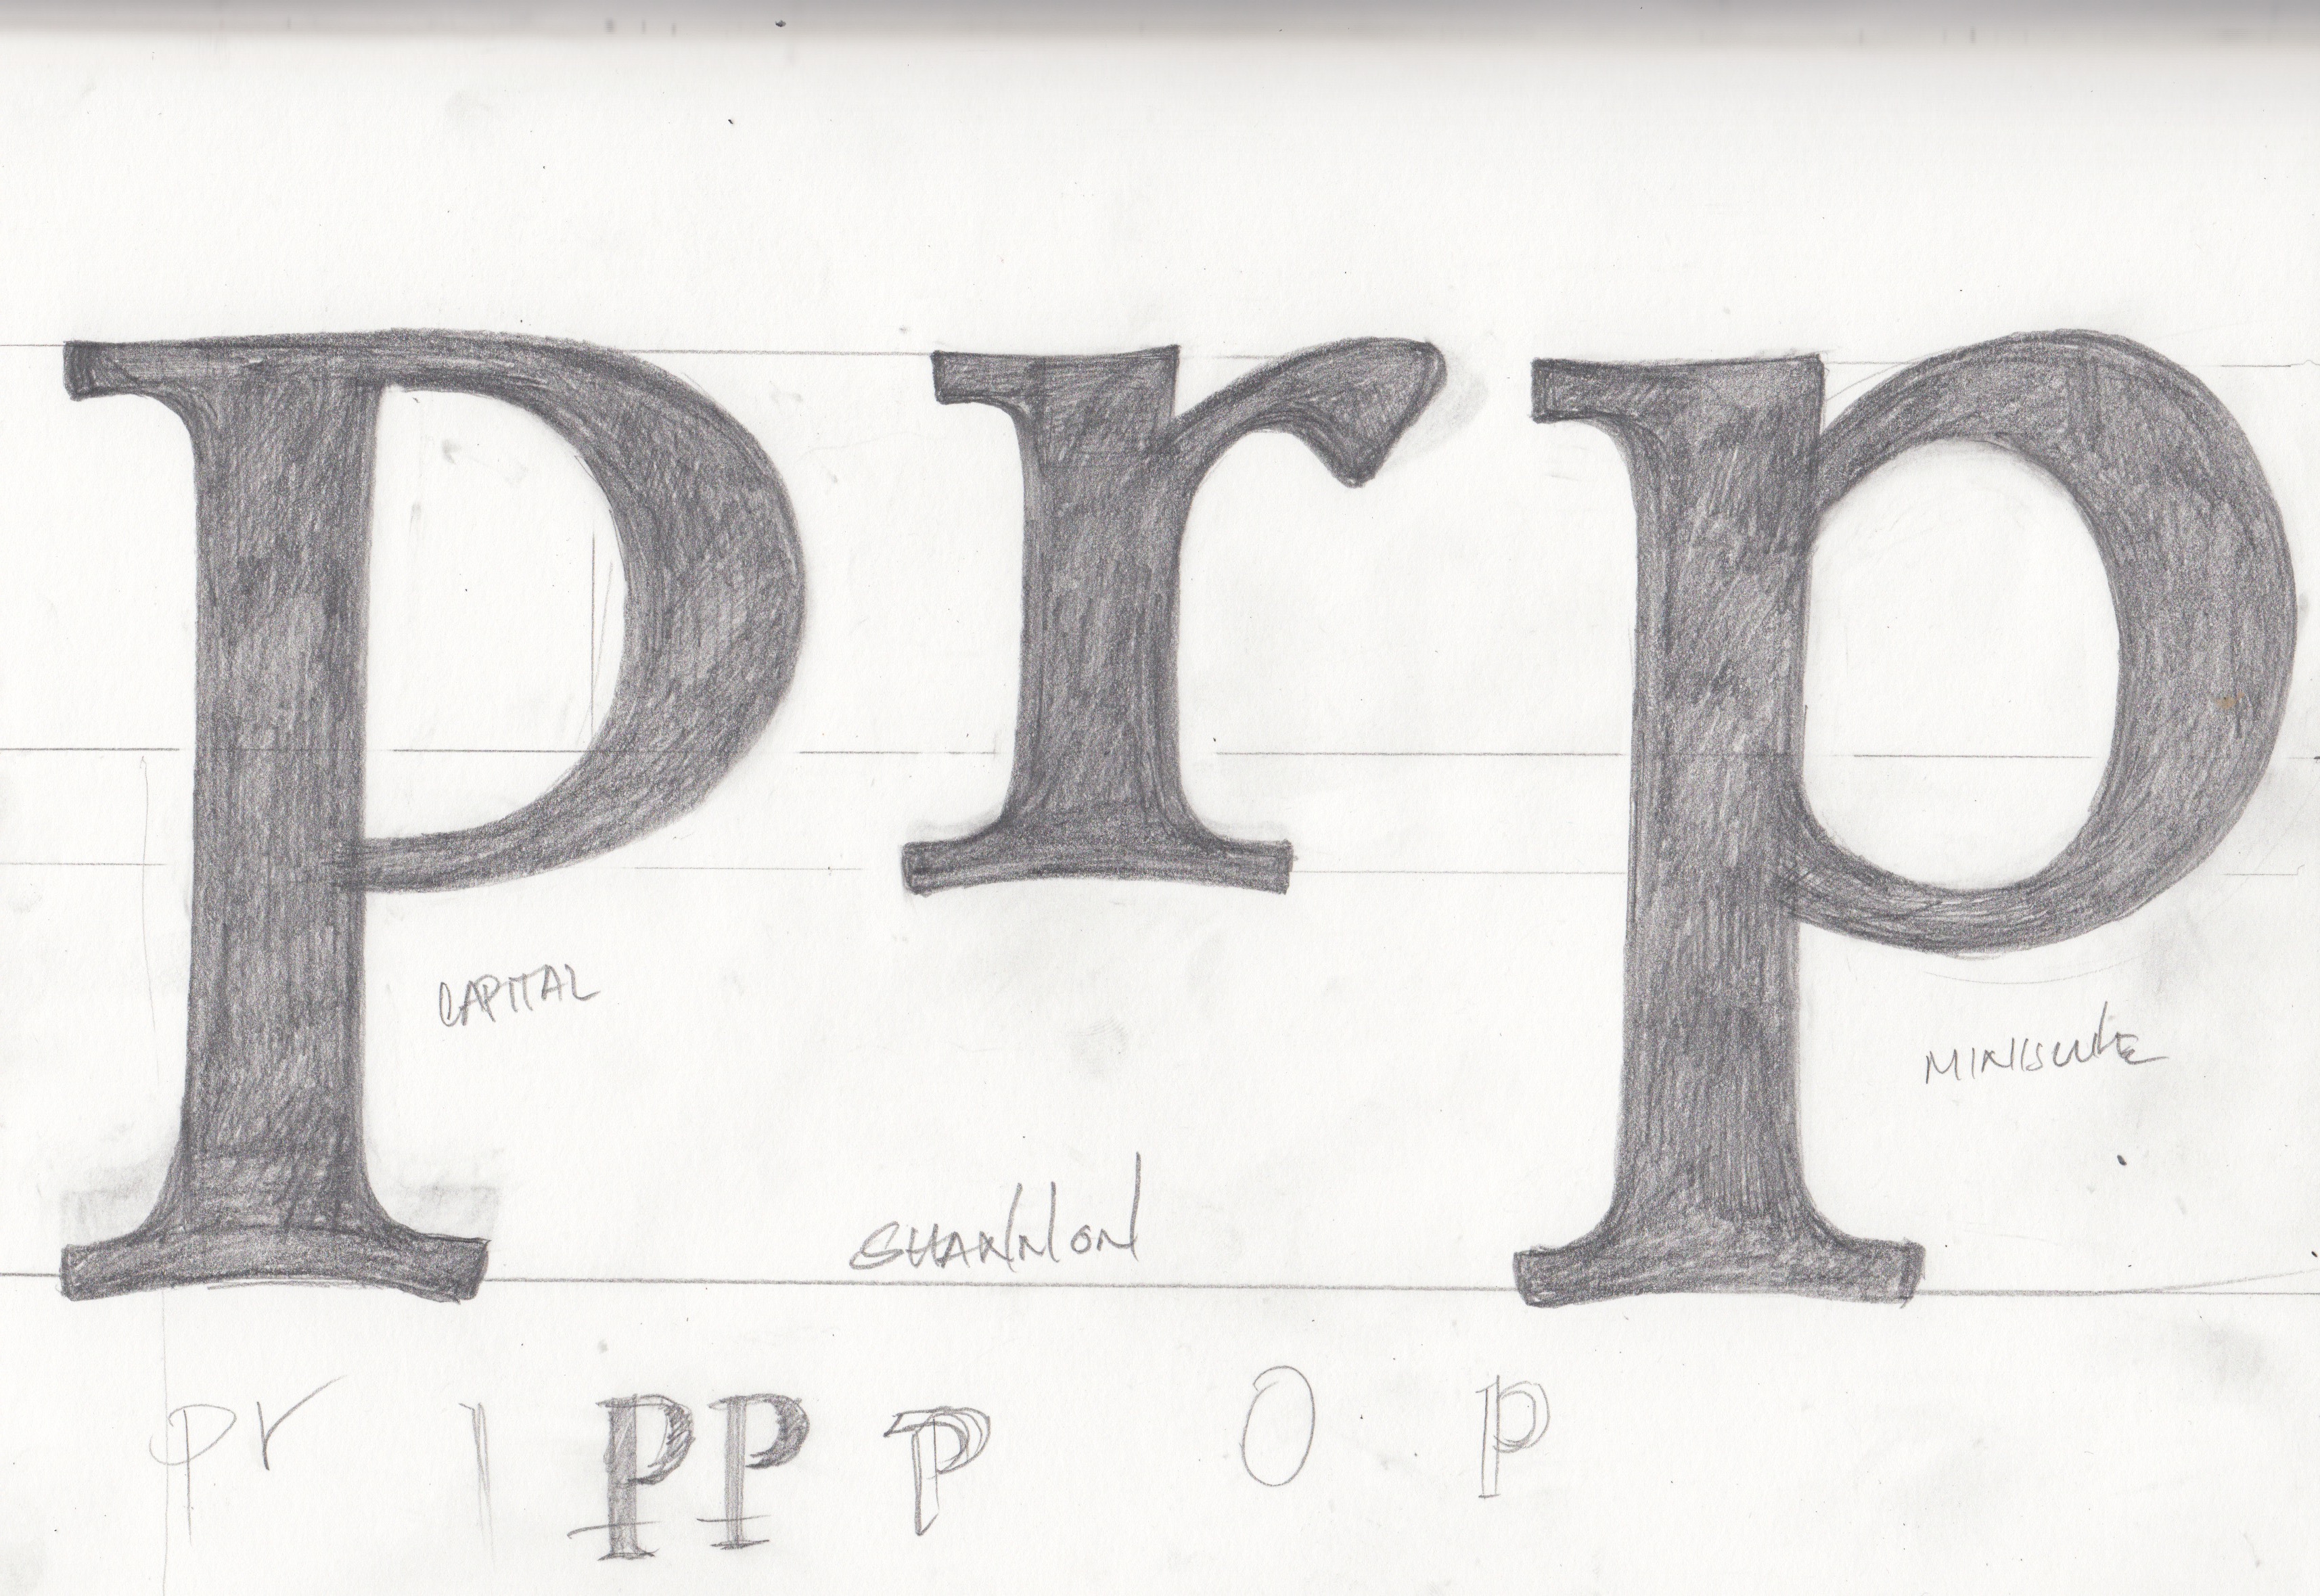 Prp
CAPITAL
MINISCULE
SHANNON
pr l PP P O p